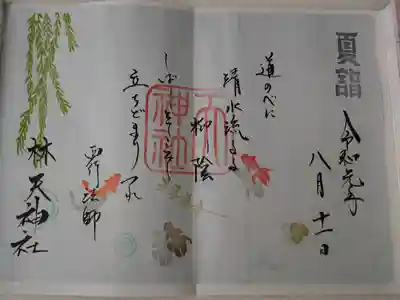 夏詣
令和元年
八月十一日
道のべに
清水流るる
柳陰
しばしとてこそ
立ちどまりつれ
西行法師
林天神社
天神社